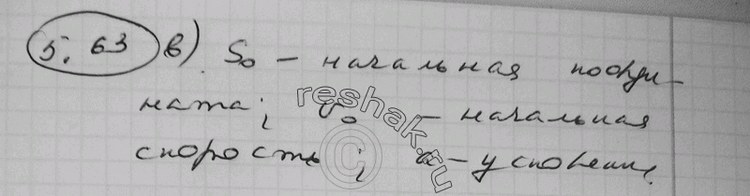 5.63 в) S₀ – начальная коорди-
ната; v₀ – начальная
скорость; a – ускорение.
reshak.ru